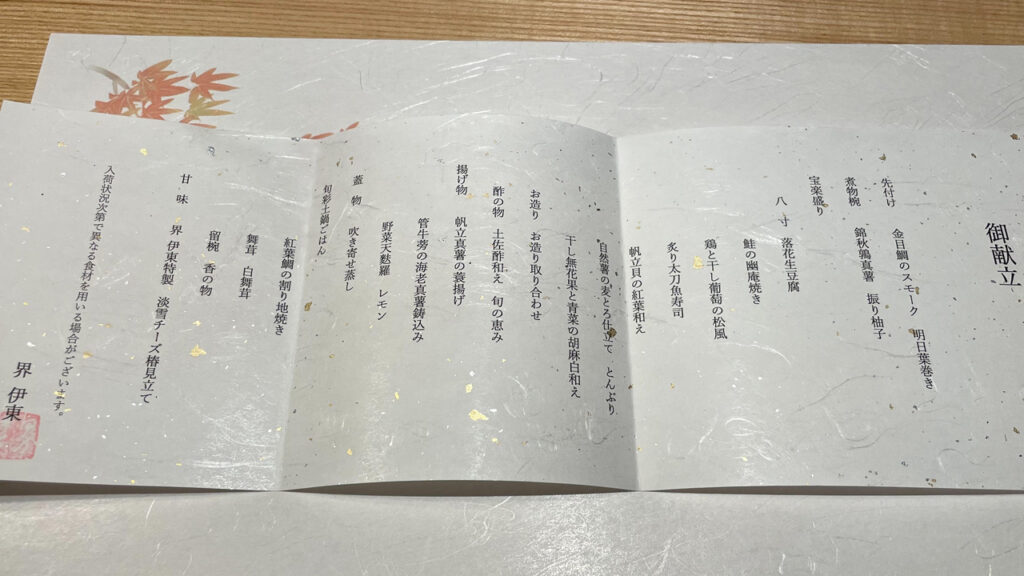 御献立
先付け 金目鯛のスモーク 明日葉巻き
煮物椀 錦秋鶉真薯 振り柚子
宝楽盛り
八寸 落花生豆腐
鮭の幽庵焼き
鶏と干し葡萄の松風
炙り太刀魚寿司
帆立貝の紅葉和え
自然薯の麦とろ仕立て とんぶり
干し無花果と青菜の胡麻白和え
お造り お造り取り合わせ
酢の物 土佐酢和え 旬の恵み
揚げ物 帆立真薯の蓑揚げ
管牛蒡の海老真薯鋳込み
野菜天麩羅 レモン
蓋物 吹き寄せ蒸し
旬彩土鍋ごはん
紅葉鯛の割り地焼き
舞茸 白舞茸
留椀 香の物
甘味 界 伊東特製 淡雪チーズ椿見立て
入荷状況次第で異なる食材を用いる場合がございます。
界 伊東